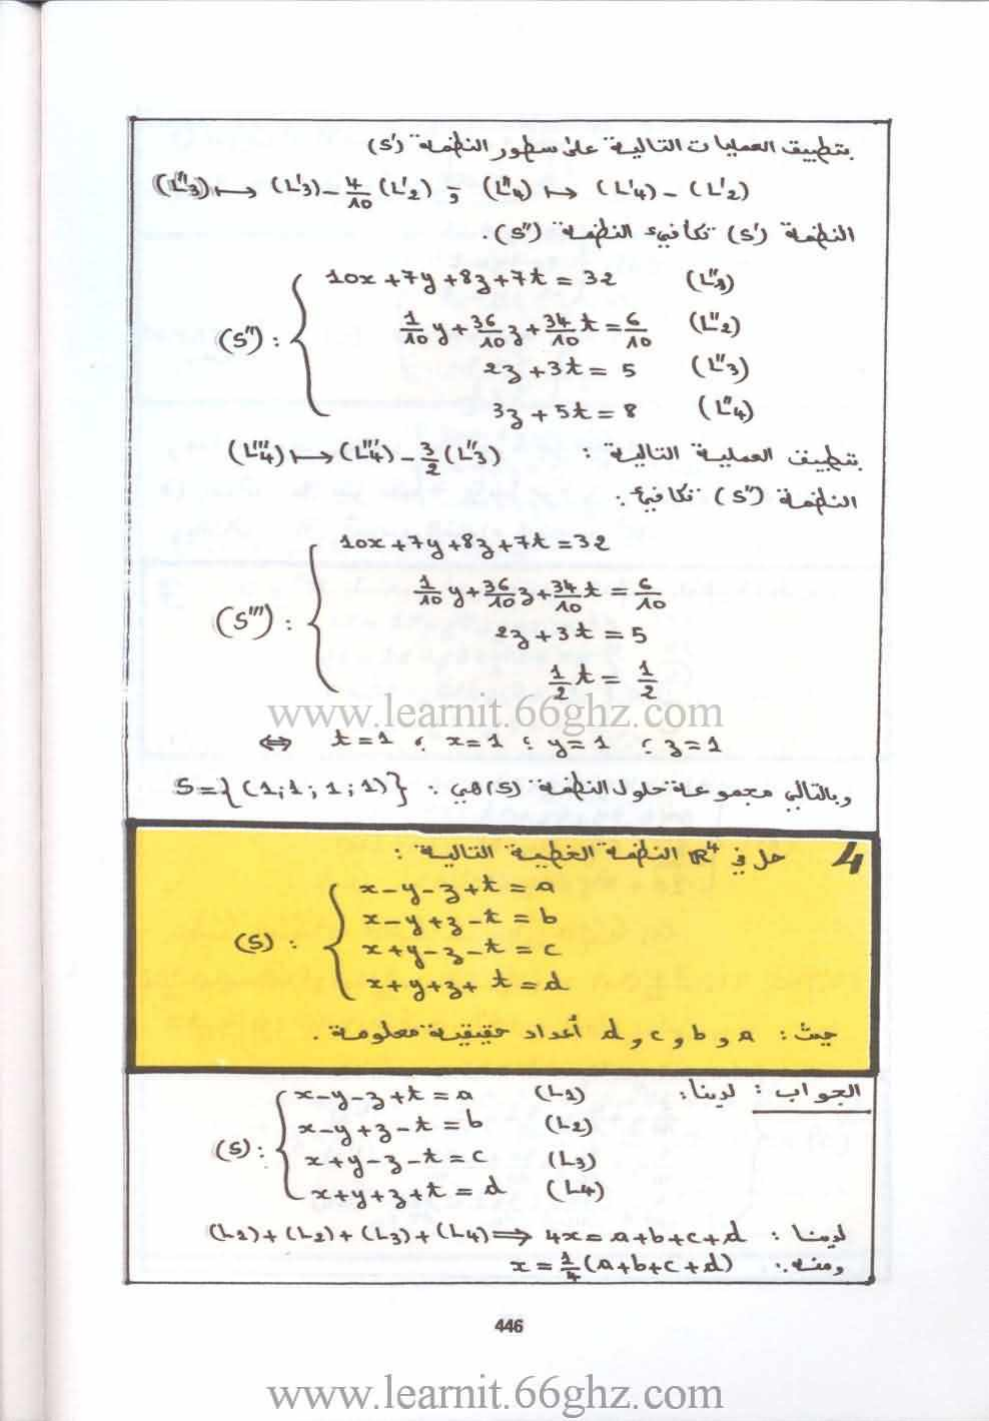 بتطبيق العمليات التالية على سطور النظمة (S')
(L"3) ↦ (L'3) - 4/10 (L'2) و (L"4) ↦ (L'4) - (L'2)
النظمة (S') تكافيء النظمة (S").
10x + 7y + 8z + 7t = 32 (L"1)
(S") : 1/10 y + 36/10 z + 34/10 t = 6/10 (L"2)
2z + 3t = 5 (L"3)
3z + 5t = 8 (L"4)
بتطبيق العملية التالية : (L'''4) ↦ (L'''4) - 3/2 (L"3)
النظمة (S") تكافيء :
10x + 7y + 8z + 7t = 32
(S''') : 1/10 y + 36/10 z + 34/10 t = 6/10
2z + 3t = 5
1/2 t = 1/2
www.learnit.66ghz.com
⇔ t = 1 ; x = 1 ; y = 1 ; z = 1
وبالتالي مجموعة حلول النظمة (S) هي : S = {(1;1;1;1)}
4 حل في ℝ⁴ النظمة الخطية التالية :
x - y - z + t = a
x - y + z - t = b
(S) : x + y - z - t = c
x + y + z + t = d
حيث : a و b و c و d أعداد حقيقية معلومة .
الجواب : لدينا :
x - y - z + t = a (L1)
x - y + z - t = b (L2)
(S) : x + y - z - t = c (L3)
x + y + z + t = d (L4)
لدينا : (L1) + (L2) + (L3) + (L4) ⇒ 4x = a + b + c + d
ومنه : x = 1/4 (a + b + c + d)
446
www.learnit.66ghz.com